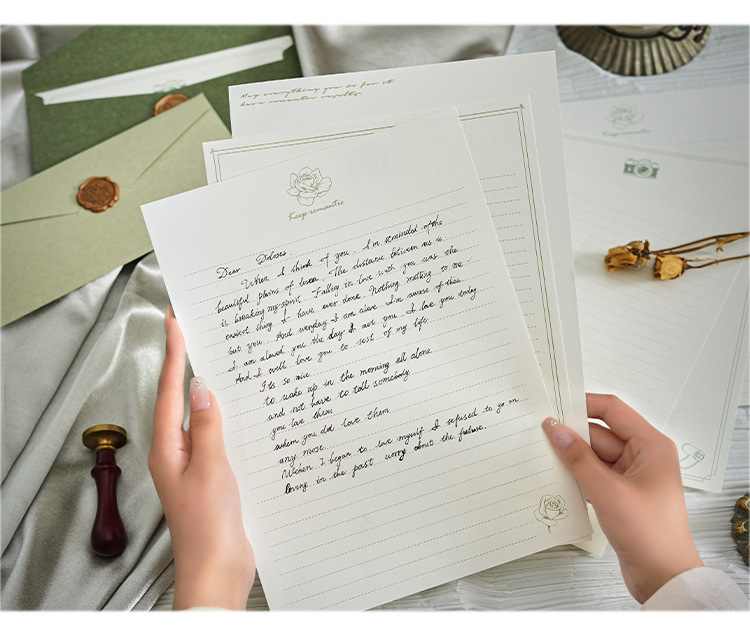 May everything you do fix it
have romantic results.
Keep romantic
Dear Dolores
When I think of you. I'm reminded of the
beautiful plains of texsa. The distance between us is
is breaking my spirit. Fallen in love with you was the
easiest thing I have ever done. Nothing matting to me
but you. And everyday I am alive. I'm aware of this.
I am aloved you the day I met you. I love you today
And I will love you to rest of my life
Its so nice
to wake up in the morning all alone
and not have to tell somebody
you love them
when you dot love them
any more.
When I began to love myself I refused to go on
living in the past worry about the future.